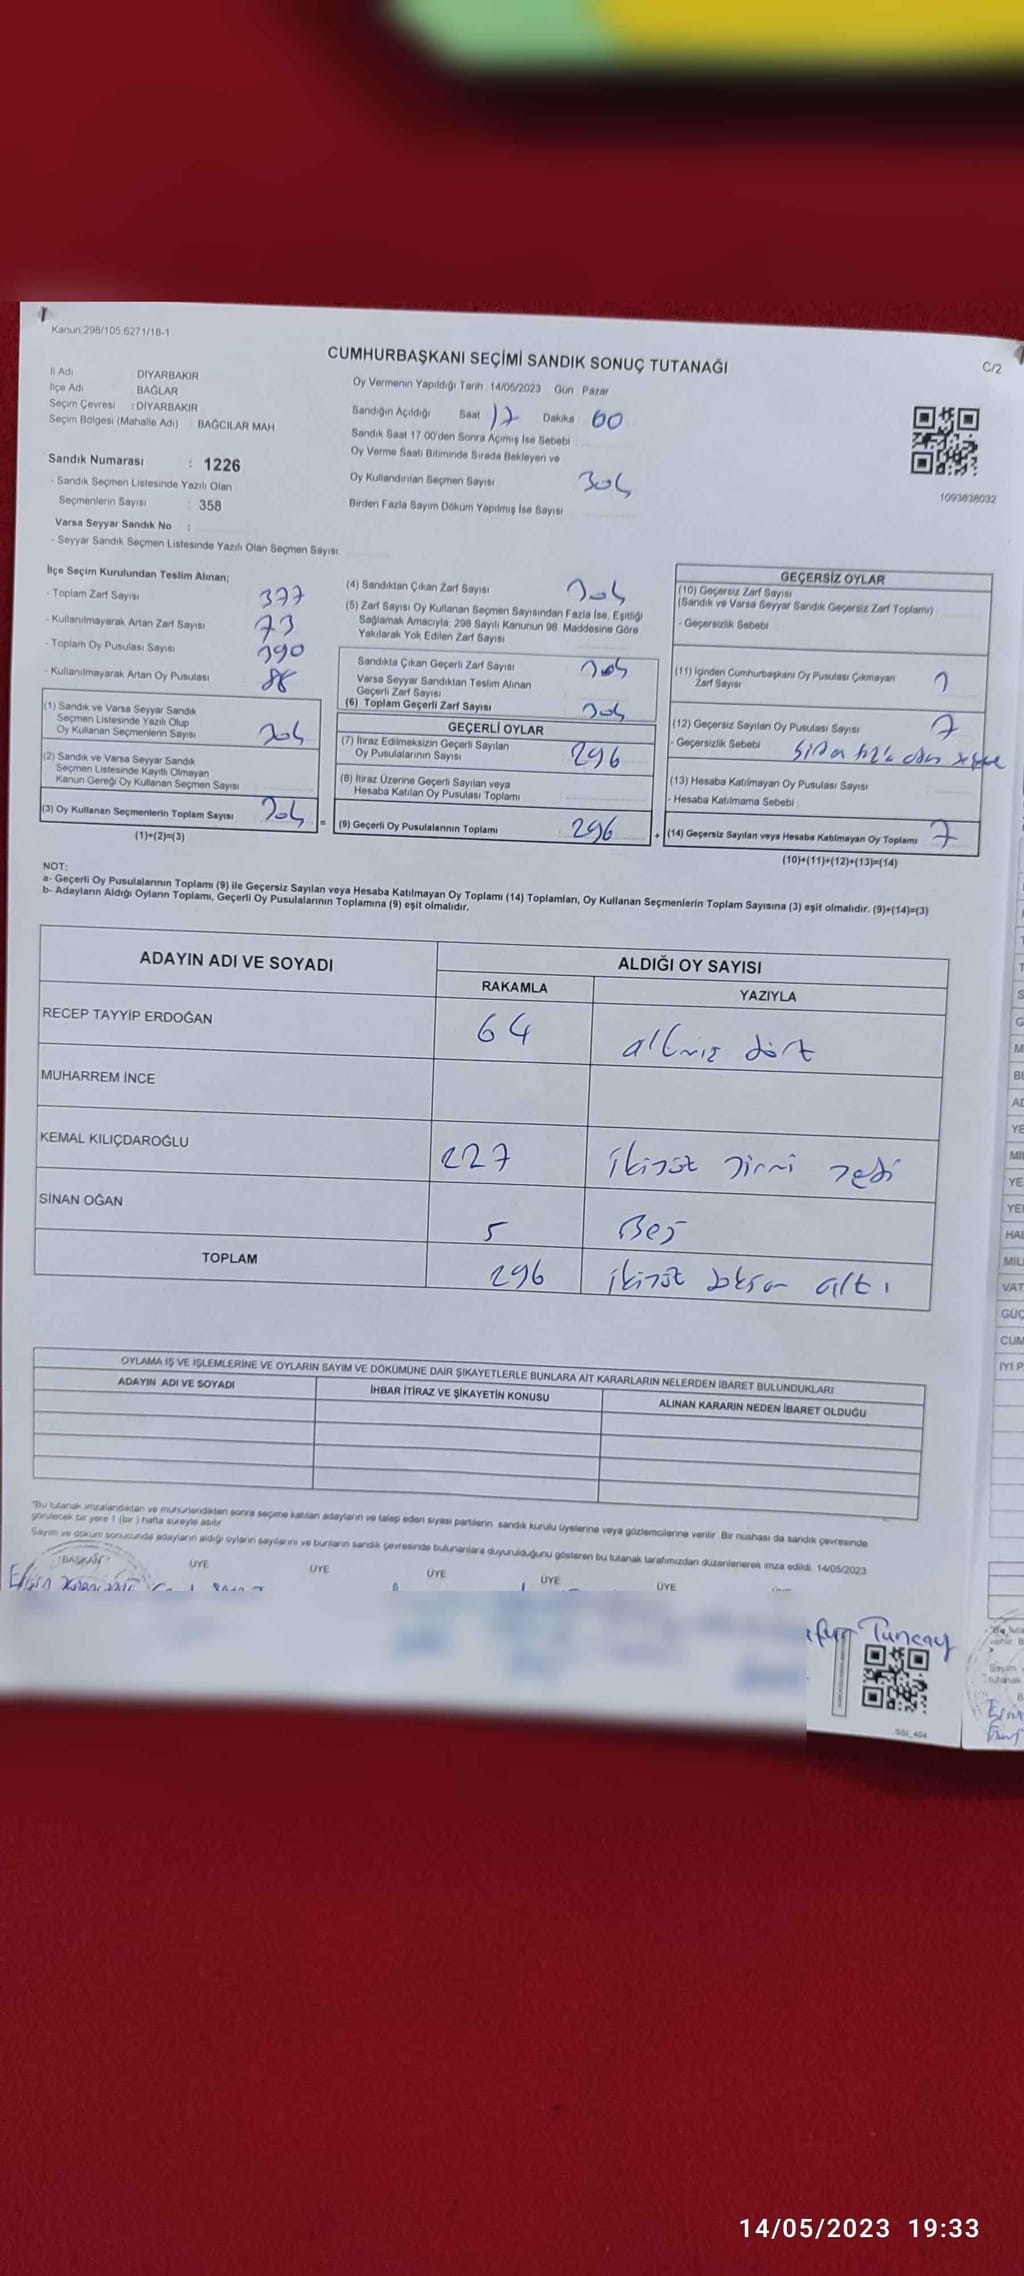 Kanun:298/105,6271/18-1
CUMHURBAŞKANI SEÇİMİ SANDIK SONUÇ TUTANAĞI
C/2
İl Adı DİYARBAKIR
İlçe Adı BAĞLAR
Seçim Çevresi : DİYARBAKIR
Seçim Bölgesi (Mahalle Adı) : BAĞCILAR MAH
Sandık Numarası : 1226
- Sandık Seçmen Listesinde Yazılı Olan
Seçmenlerin Sayısı : 358
Varsa Seyyar Sandık No :
- Seyyar Sandık Seçmen Listesinde Yazılı Olan Seçmen Sayısı
Oy Vermenin Yapıldığı Tarih : 14/05/2023 Gün : Pazar
Sandığın Açıldığı Saat 17 Dakika 00
Sandık Saat 17:00'den Sonra Açımış İse Sebebi
Oy Verme Saati Bitiminde Sırada Bekleyen ve
Oy Kullandırılan Seçmen Sayısı 304
Birden Fazla Sayım Döküm Yapılmış İse Sayısı
1093838032
İlçe Seçim Kurulundan Teslim Alınan;
- Toplam Zarf Sayısı 377
- Kullanılmayarak Artan Zarf Sayısı 73
- Toplam Oy Pusulası Sayısı 390
- Kullanılmayarak Artan Oy Pusulası 86
(1) Sandık ve Varsa Seyyar Sandık
Seçmen Listesinde Yazılı Olup
Oy Kullanan Seçmenlerin Sayısı 304
(2) Sandık ve Varsa Seyyar Sandık
Seçmen Listesinde Kayıtlı Olmayan
Kanun Gereği Oy Kullanan Seçmen Sayısı
(3) Oy Kullanan Seçmenlerin Toplam Sayısı 304 =
(1)+(2)=(3)
(4) Sandıktan Çıkan Zarf Sayısı 304
(5) Zarf Sayısı Oy Kullanan Seçmen Sayısından Fazla İse, Eşitliği
Sağlamak Amacıyla, 298 Sayılı Kanunun 98. Maddesine Göre
Yakılarak Yok Edilen Zarf Sayısı
Sandıkta Çıkan Geçerli Zarf Sayısı 304
Varsa Seyyar Sandıktan Teslim Alınan
Geçerli Zarf Sayısı
(6) Toplam Geçerli Zarf Sayısı 304
GEÇERLİ OYLAR
(7) İtiraz Edilmeksizin Geçerli Sayılan
Oy Pusulalarının Sayısı 296
(8) İtiraz Üzerine Geçerli Sayılan veya
Hesaba Katılan Oy Pusulası Toplamı
(9) Geçerli Oy Pusulalarının Toplamı 296 +
GEÇERSİZ OYLAR
(10) Geçersiz Zarf Sayısı
(Sandık ve Varsa Seyyar Sandık Geçersiz Zarf Toplamı)
- Geçersizlik Sebebi
(11) İçinden Cumhurbaşkanı Oy Pusulası Çıkmayan
Zarf Sayısı 1
(12) Geçersiz Sayılan Oy Pusulası Sayısı 7
- Geçersizlik Sebebi
(13) Hesaba Katılmayan Oy Pusulası Sayısı
- Hesaba Katılmama Sebebi
(14) Geçersiz Sayılan veya Hesaba Katılmayan Oy Toplamı 7
(10)+(11)+(12)+(13)=(14)
NOT:
a- Geçerli Oy Pusulalarının Toplamı (9) ile Geçersiz Sayılan veya Hesaba Katılmayan Oy Toplamı (14) Toplamları, Oy Kullanan Seçmenlerin Toplam Sayısına (3) eşit olmalıdır. (9)+(14)=(3)
b- Adayların Aldığı Oyların Toplamı, Geçerli Oy Pusulalarının Toplamına (9) eşit olmalıdır.
ADAYIN ADI VE SOYADI
ALDIĞI OY SAYISI
RAKAMLA YAZIYLA
RECEP TAYYİP ERDOĞAN 64 altmış dört
MUHARREM İNCE
KEMAL KILIÇDAROĞLU 227 ikiyüz yirmi yedi
SİNAN OĞAN 5 Beş
TOPLAM 296 ikiyüz doksan altı
OYLAMA İŞ VE İŞLEMLERİNE VE OYLARIN SAYIM VE DÖKÜMÜNE DAİR ŞİKAYETLERLE BUNLARA AİT KARARLARIN NELERDEN İBARET BULUNDUKLARI
ADAYIN ADI VE SOYADI İHBAR İTİRAZ VE ŞİKAYETİN KONUSU ALINAN KARARIN NEDEN İBARET OLDUĞU
"Bu tutanak imzalandıktan ve mühürlendikten sonra seçime katılan adayların ve talep eden siyasi partilerin sandık kurulu üyelerine veya gözlemcilerine verilir. Bir nüshası da sandık çevresinde
görülecek bir yere 1 (bir) hafta süreyle asılır
Sayım ve döküm sonucunda adayların aldığı oyların sayılarını ve bunların sandık çevresinde bulunanlara duyurulduğunu gösteren bu tutanak tarafımızdan düzenlenerek imza edildi. 14/05/2023
BAŞKAN ÜYE ÜYE ÜYE ÜYE ÜYE
Tuncay
14/05/2023 19:33